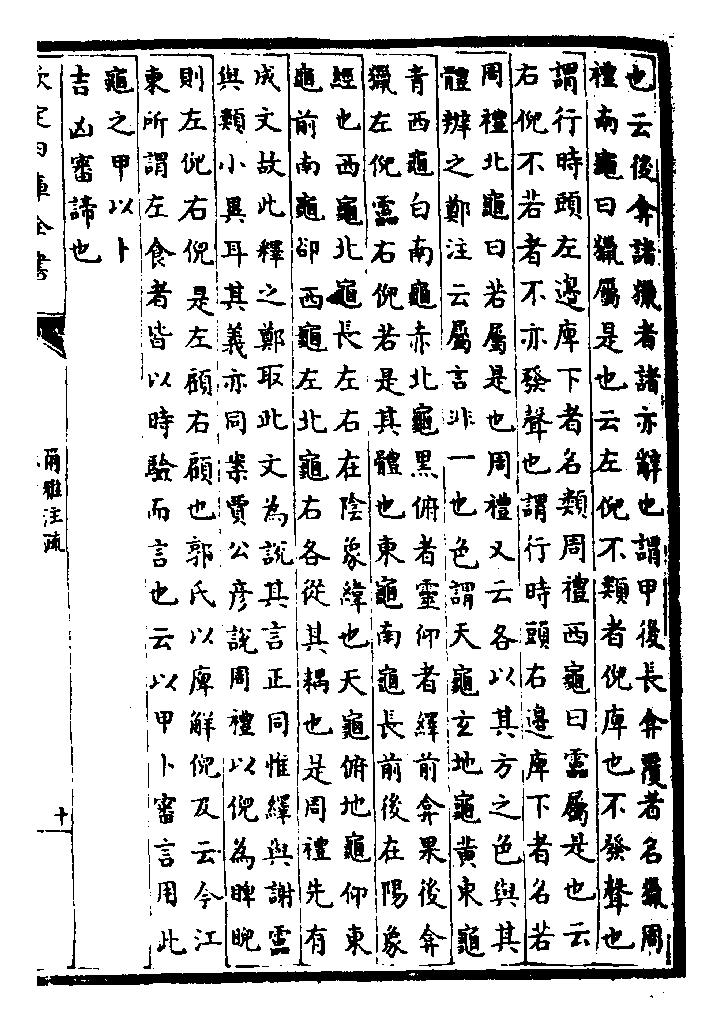 也云後弇諸獵者諸亦辭也謂甲後長弇覆者名獵周
禮南龜曰獵屬是也云左倪不類者倪庳也不發聲也
謂行時頭左邊庳下者名類周禮西龜曰靁屬是也云
右倪不若者不亦發聲也謂行時頭右邊庳下者名若
周禮北龜曰若屬是也周禮又云各以其方之色與其
體辨之鄭注云屬言非一也色謂天龜玄地龜黃東龜
青西龜白南龜赤北龜黑俯者靈仰者繹前弇果後弇
獵左倪靁右倪若是其體也東龜南龜長前後在陽象
經也西龜北龜長左右在陰象緯也天龜俯地龜仰東
龜前南龜卻西龜左北龜右各從其耦也是周禮先有
成文故此釋之鄭取此文為說其言正同惟繹與謝靁
與類小異耳其義亦同案賈公彥說周禮以倪為睥睨
則左倪右倪是左顧右顧也郭氏以庳解倪及云今江
東所謂左食者皆以時驗而言也云以甲卜審言用此
龜之甲以卜
吉凶審諦也
欽定四庫全書
爾雅注疏
十